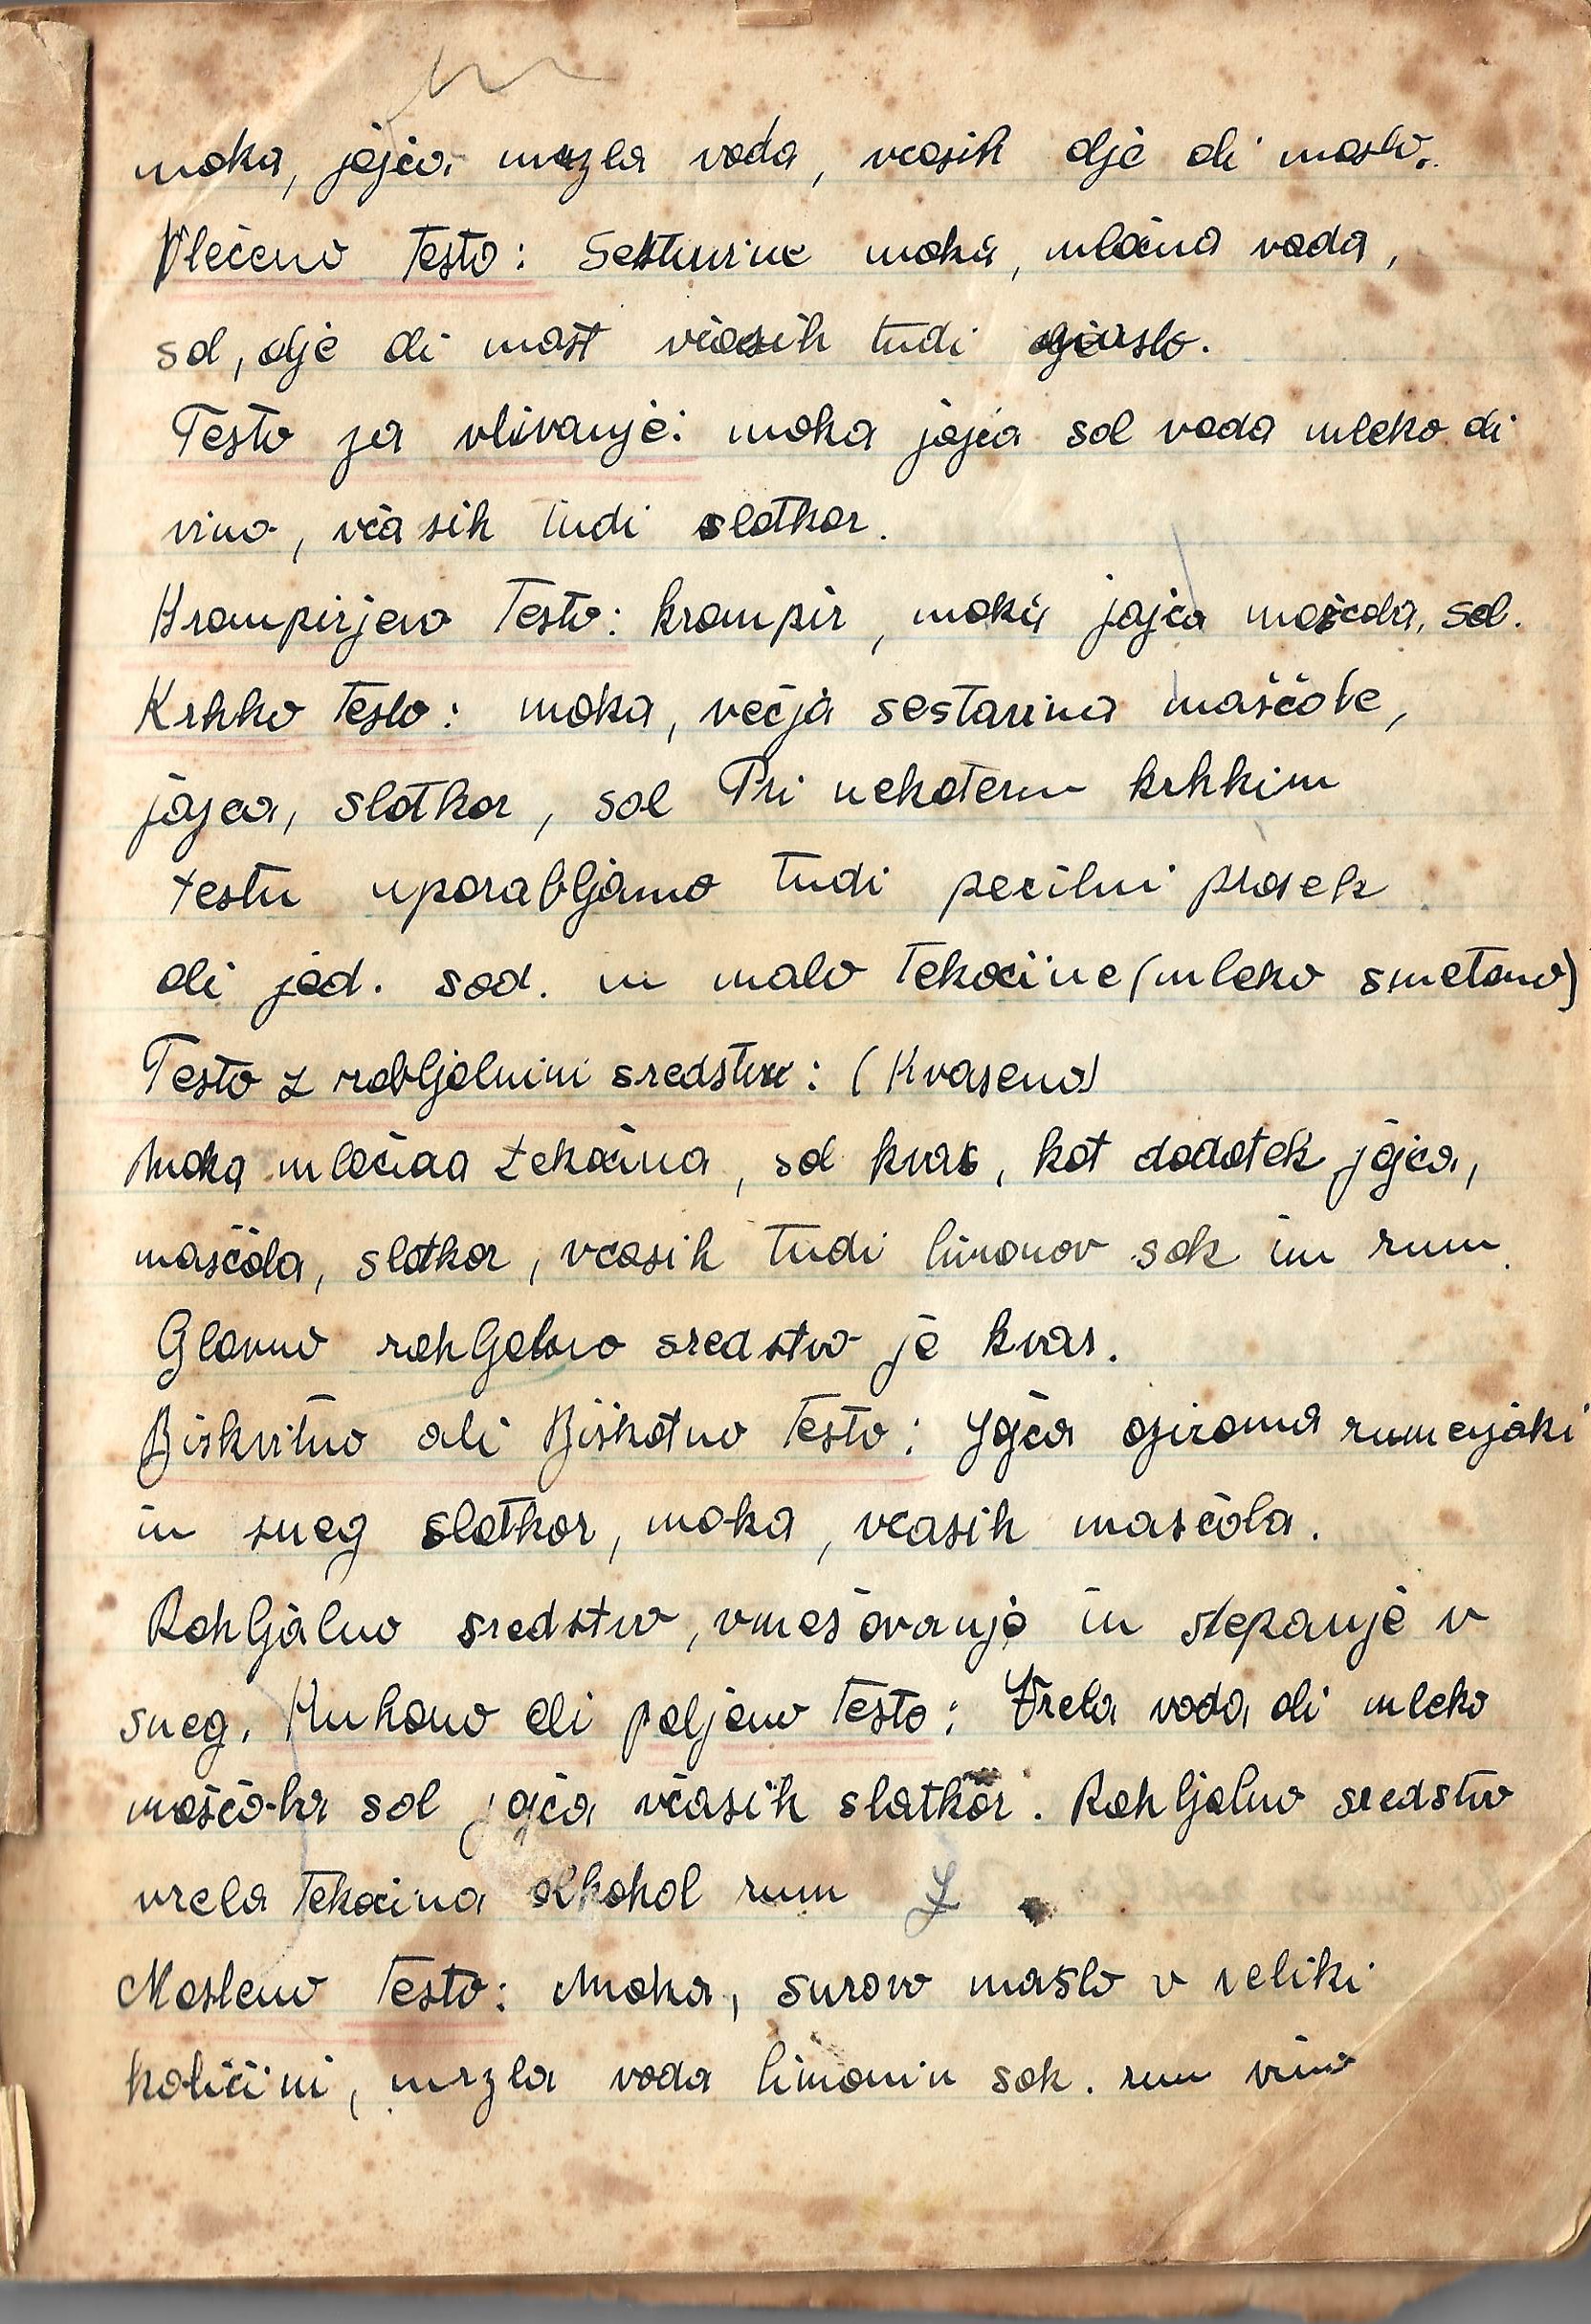 moka, jajca mrzla voda, vcasih olje ali maslo.
Vlečeno Testo: Sestavine moka, mlačna voda,
sol, olje ali mast včasih tudi
Testo za vlivanje: moka jajca sol voda mleko ali
vino, včasih tudi slatkor.
Krompirjevo Testo: krompir, moka jajca maščoba, sol.
Krhko Testo: moka, večja sestavina maščobe,
jajca, slatkor, sol Pri nekaterem krhkim
testu uporabljamo tudi pecilni prašek
ali jed. sod. in malo Tekočine (mleko smetano)
Testo z rahljalnimi sredstvi: (Kvaseno)
Moka mlačna tekočina, sol kvas, kot dodatek jajca,
maščoba, slatkor, vcasih Tudi limonov sok in rum.
Glavno rahljalno sredstvo je kvas.
Biskvitno ali Biškotno Testo: Jajca oziroma rumenjaki
in sneg slatkor, moka, vcasih maščoba.
Rahljalno sredstvo, vmešavanje in stepanje v
sneg. Kuhano ali paljeno Testo: Vrela voda ali mleko
maščoba sol jajca včasih slatkor. Rahljalno sredstvo
vrela Tekočina alkohol rum
Masleno Testo: Moka, surovo maslo v veliki
količini, mrzla voda limonin sok. rum vino